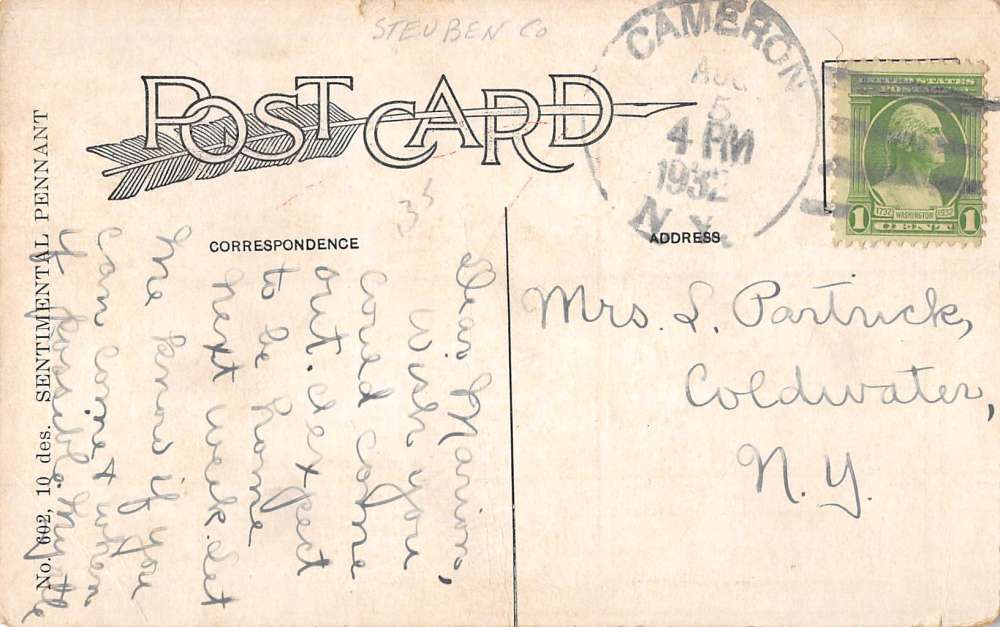 STEUBEN CO
POST CARD
CAMERON
AUG
5
4 PM
1932
N.Y.
UNITED STATES
POSTAGE
1 1732 WASHINGTON 1932 1
CENT
35
CORRESPONDENCE
ADDRESS
Dear Marion,
Wish you
could come
out. I expect
to be home
next week. Let
me know if you
can come & when
if possible. Myrtle
Mrs. L. Partrick,
Coldwater,
N.Y.
No. 602, 10 des. SENTIMENTAL PENNANT